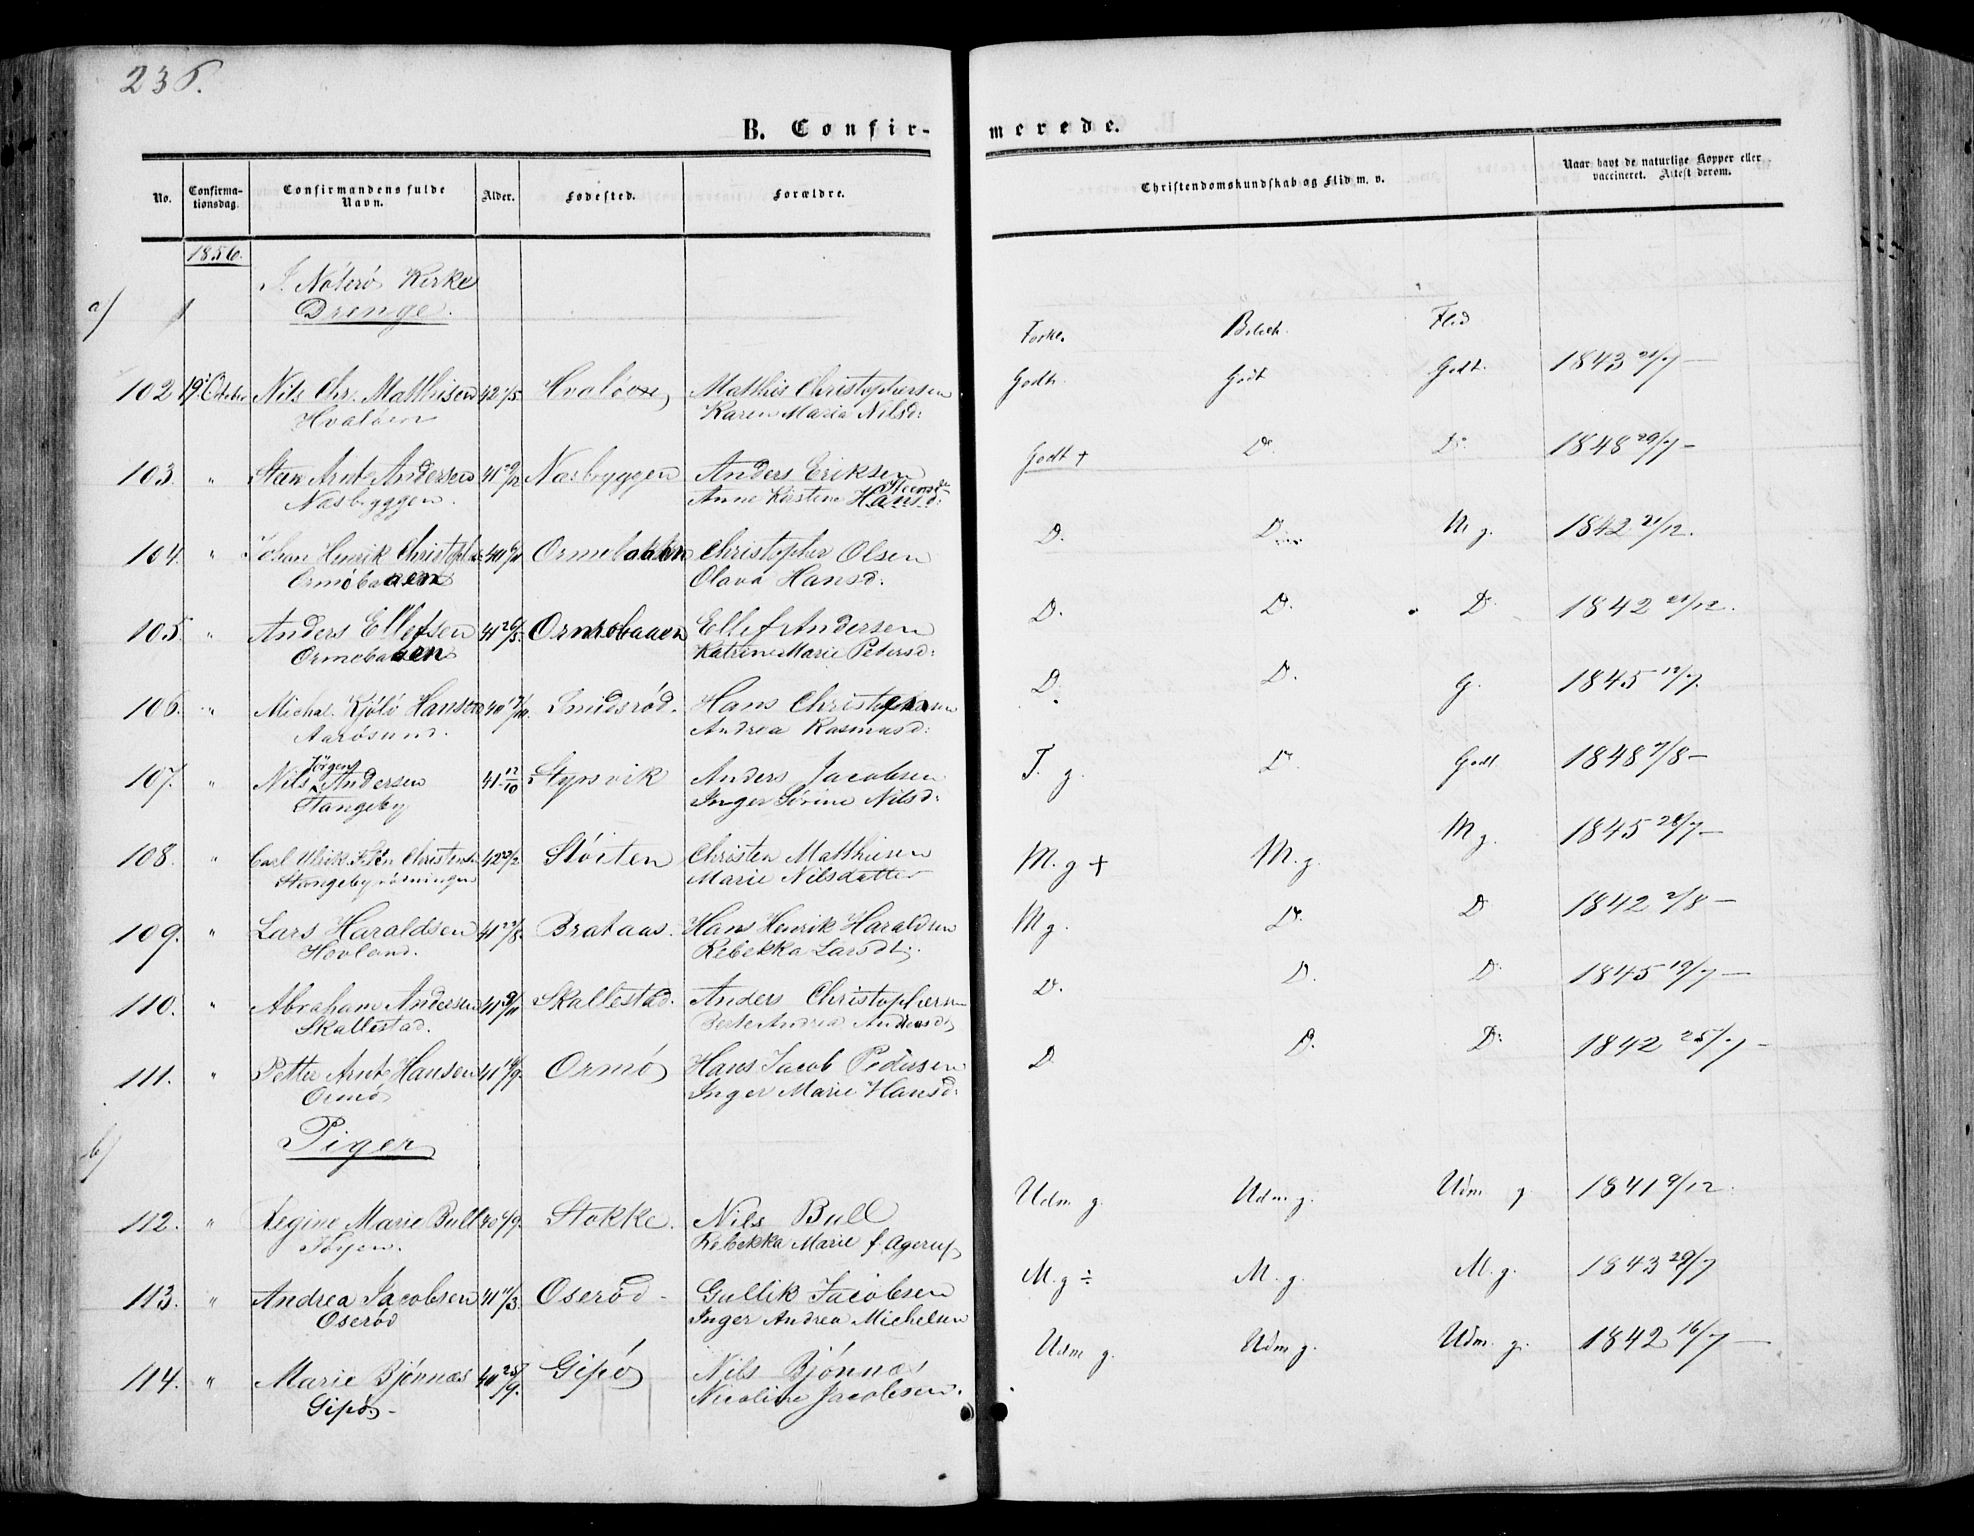 236.
B. Confirmerede.
No. Confirmationsdag. Confirmandens fulde Navn. Alder. Fødested. Forældre. Christendomskundskab og Flid m. v. Naar havt de naturlige Kopper eller vaccineret. Attest derom.
1856.
I Nøterø Kirke
a) Drenge.
Forkl. Flid
102 19 October Nils Chr. Matthisen 42 Hvaløen Matthis Christophersen Godt. Godt Godt. 1843 21/7 —
Hvaløen Karen Maria Nilsd:
103. " Steen Arnt Andersen 41 Næsbyggen Anders Eriksen Godt + Do Do 1848 29/7 —
Næsbyggen. Anne Kirstine Hansd: Steensd:
104. " Johan Henrik Christophers. 40 Ormøbakken Christopher Olsen D. D. M g. 1842 21/12.
Olava Hansd.
105. " Anders Ellefsen 41 26/5. Ormøbaaen Ellef Andersen D. D. D. 1842 21/12.
Katrine Marie Pedersd:
106. " Michal Kjölö Hansen 40 Smidsrød. Hans Christophersen D. D. G. 1845 19/7.
Aarøsund. Andrea Rasmusd:
107. " Nils Jörgen Andersen 41 12/10 Styrsvik Anders Jacobsen T. g. D. Godt 1848 7/8 —
Stangeby Inger Sørine Nilsd:
108. " Carl Ulrik Christensen 42 Støiten Christen Matthisen M. g + M. g. M g. 1845 28/7 —
Stangebyrødningen Marie Nilsdatter
109. " Lars Haraldsen 41 Brataas. Hans Henrik Haraldsen M g. D. D 1842 2/8 —
Hovland. Rebekka Larsdt.
110. " Abraham Andersen 41 Skallestad. Anders Christophersen D. D. D. 1845 19/7 —
Skallestad. Berte Andrea Andersd
111. " Petter Arnt Hansen 41 Ormø Hans Jacob Pedersen D. D. D: 1842 25/7 —
Ormø Inger Marie Hansd:
b) Piger
112. " Regine Marie Bull 40 Stokke. Nils Bull Udm. g. Udm. g. Udm g. 1841 9/12.
Rebekka Marie f. Agerup
113. " Andrea Jacobsen 41 Oserød Gullik Jacobsen M. g ÷ M. g. M. g. 1843 29/7
Oserød Inger Andrea Michelsen
114. " Marie Bjønnæs 40 25/9. Gipø Nils Bjønnæs Udm g. Udm g. Udm. g. 1842 16/7 —
Gipø. Nicoline Jacobsen.